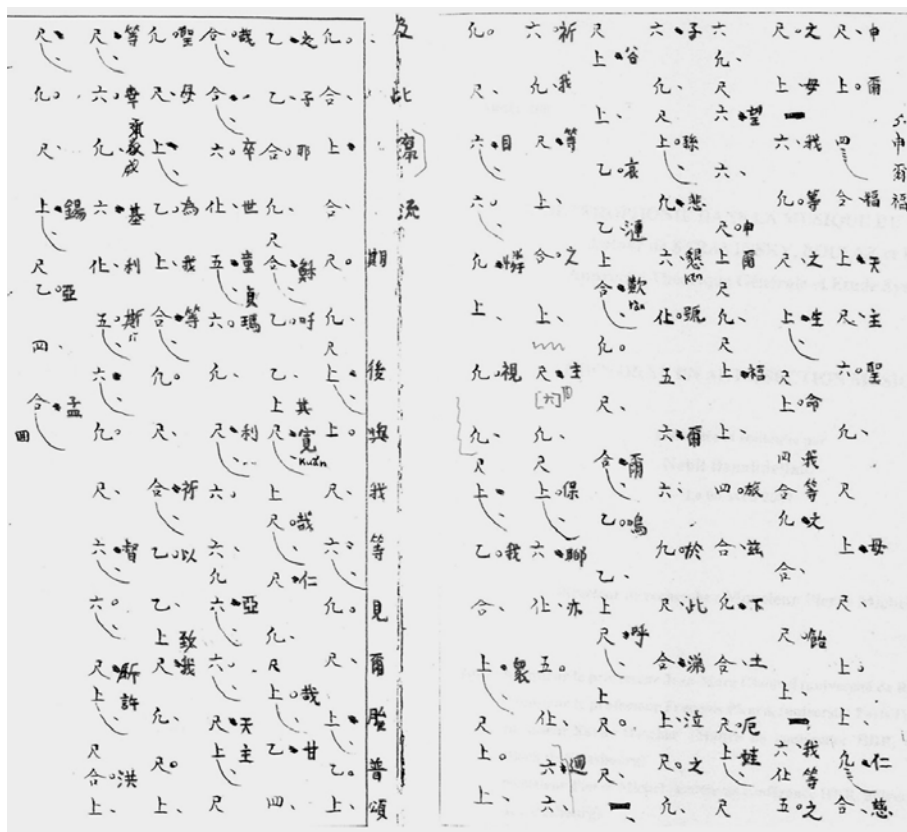 申爾福
尺申上爾四合福上天尺主六聖凢尺上母尺上上凢仁合慈
尺之上母一六我凢等乂之上生尺上命四我合等凢之合尺飴上一六我化等五之
六凢尺六望六尺申上爾尺凢尺上福上四旅合茲凢下合土尺厄上娃尺
六子凢尺上孫凢悲六懇kěn化號五六爾六凢於尺此合涕上泣尺之凢
尺上谷上乙哀乙漣上合歎凢尺合爾乙嗚乙上尺呼上尺尺一
六祈凢我尺等上合之上尺主[六]凢尺上保六聊化亦五化六週六
凢尺六目六凢憐上凢視凢尺上乙我合上衆尺上上
及此竄流期後與我等見爾胎普頌
凢合上合尺凢尺上上尺六凢尺上乙上
乙之乙子合耶凢尺合穌乙吁乙上其尺寬kuān上尺哉尺仁凢尺上哉乙甘四
合哉合六卒化世五童貞六瑪凢尺利六六凢六亞六尺天上主尺
凢聖尺母上乙為上我合等凢尺合祈乙以乙上致尺我凢尺上
尺等六幸凢六基化利五斯六凢尺六督六尺所上許尺合洪上
尺凢尺上錫尺乙亞四合孟
四